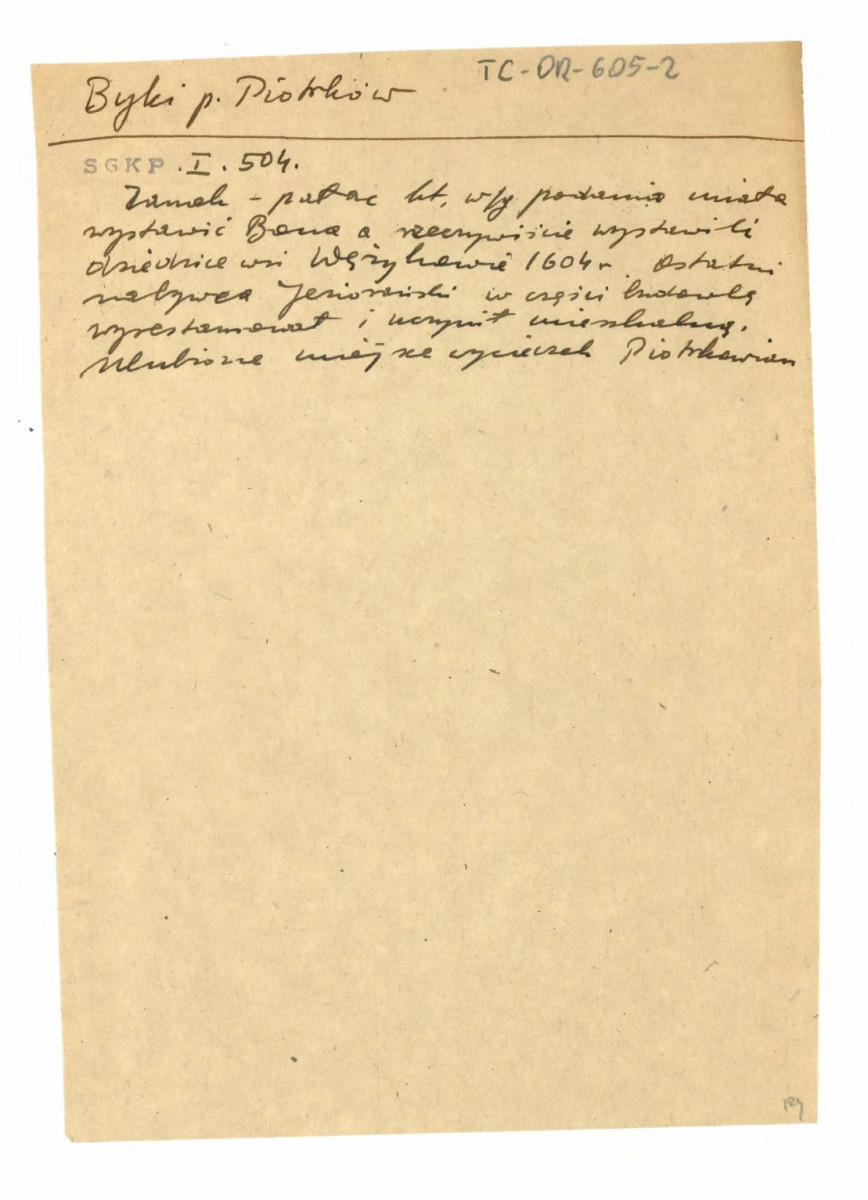 TC-OR-605-2
Byki p. Piotrków
SGKP. I. 504.
Zamek - pałac kt, wg podania miała
wystawić Bona a rzeczywiście wystawili
dziedzice wsi Wężykowie 1604 r. Ostatni
nabywca Jeziorański w części budowlę
wyrestaurował i uczynił mieszkalną.
Ulubione miejsce wycieczek Piotrkowian